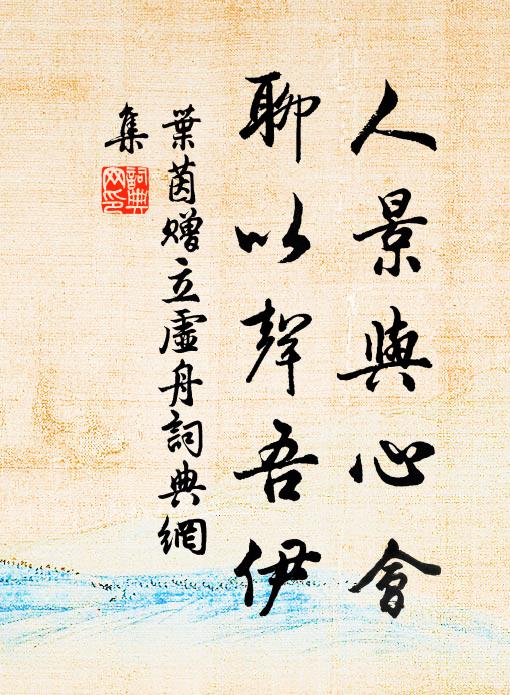 人景與心會
聊以聲吾伊
葉茵贈立虛舟詞典網
集
詞典網印